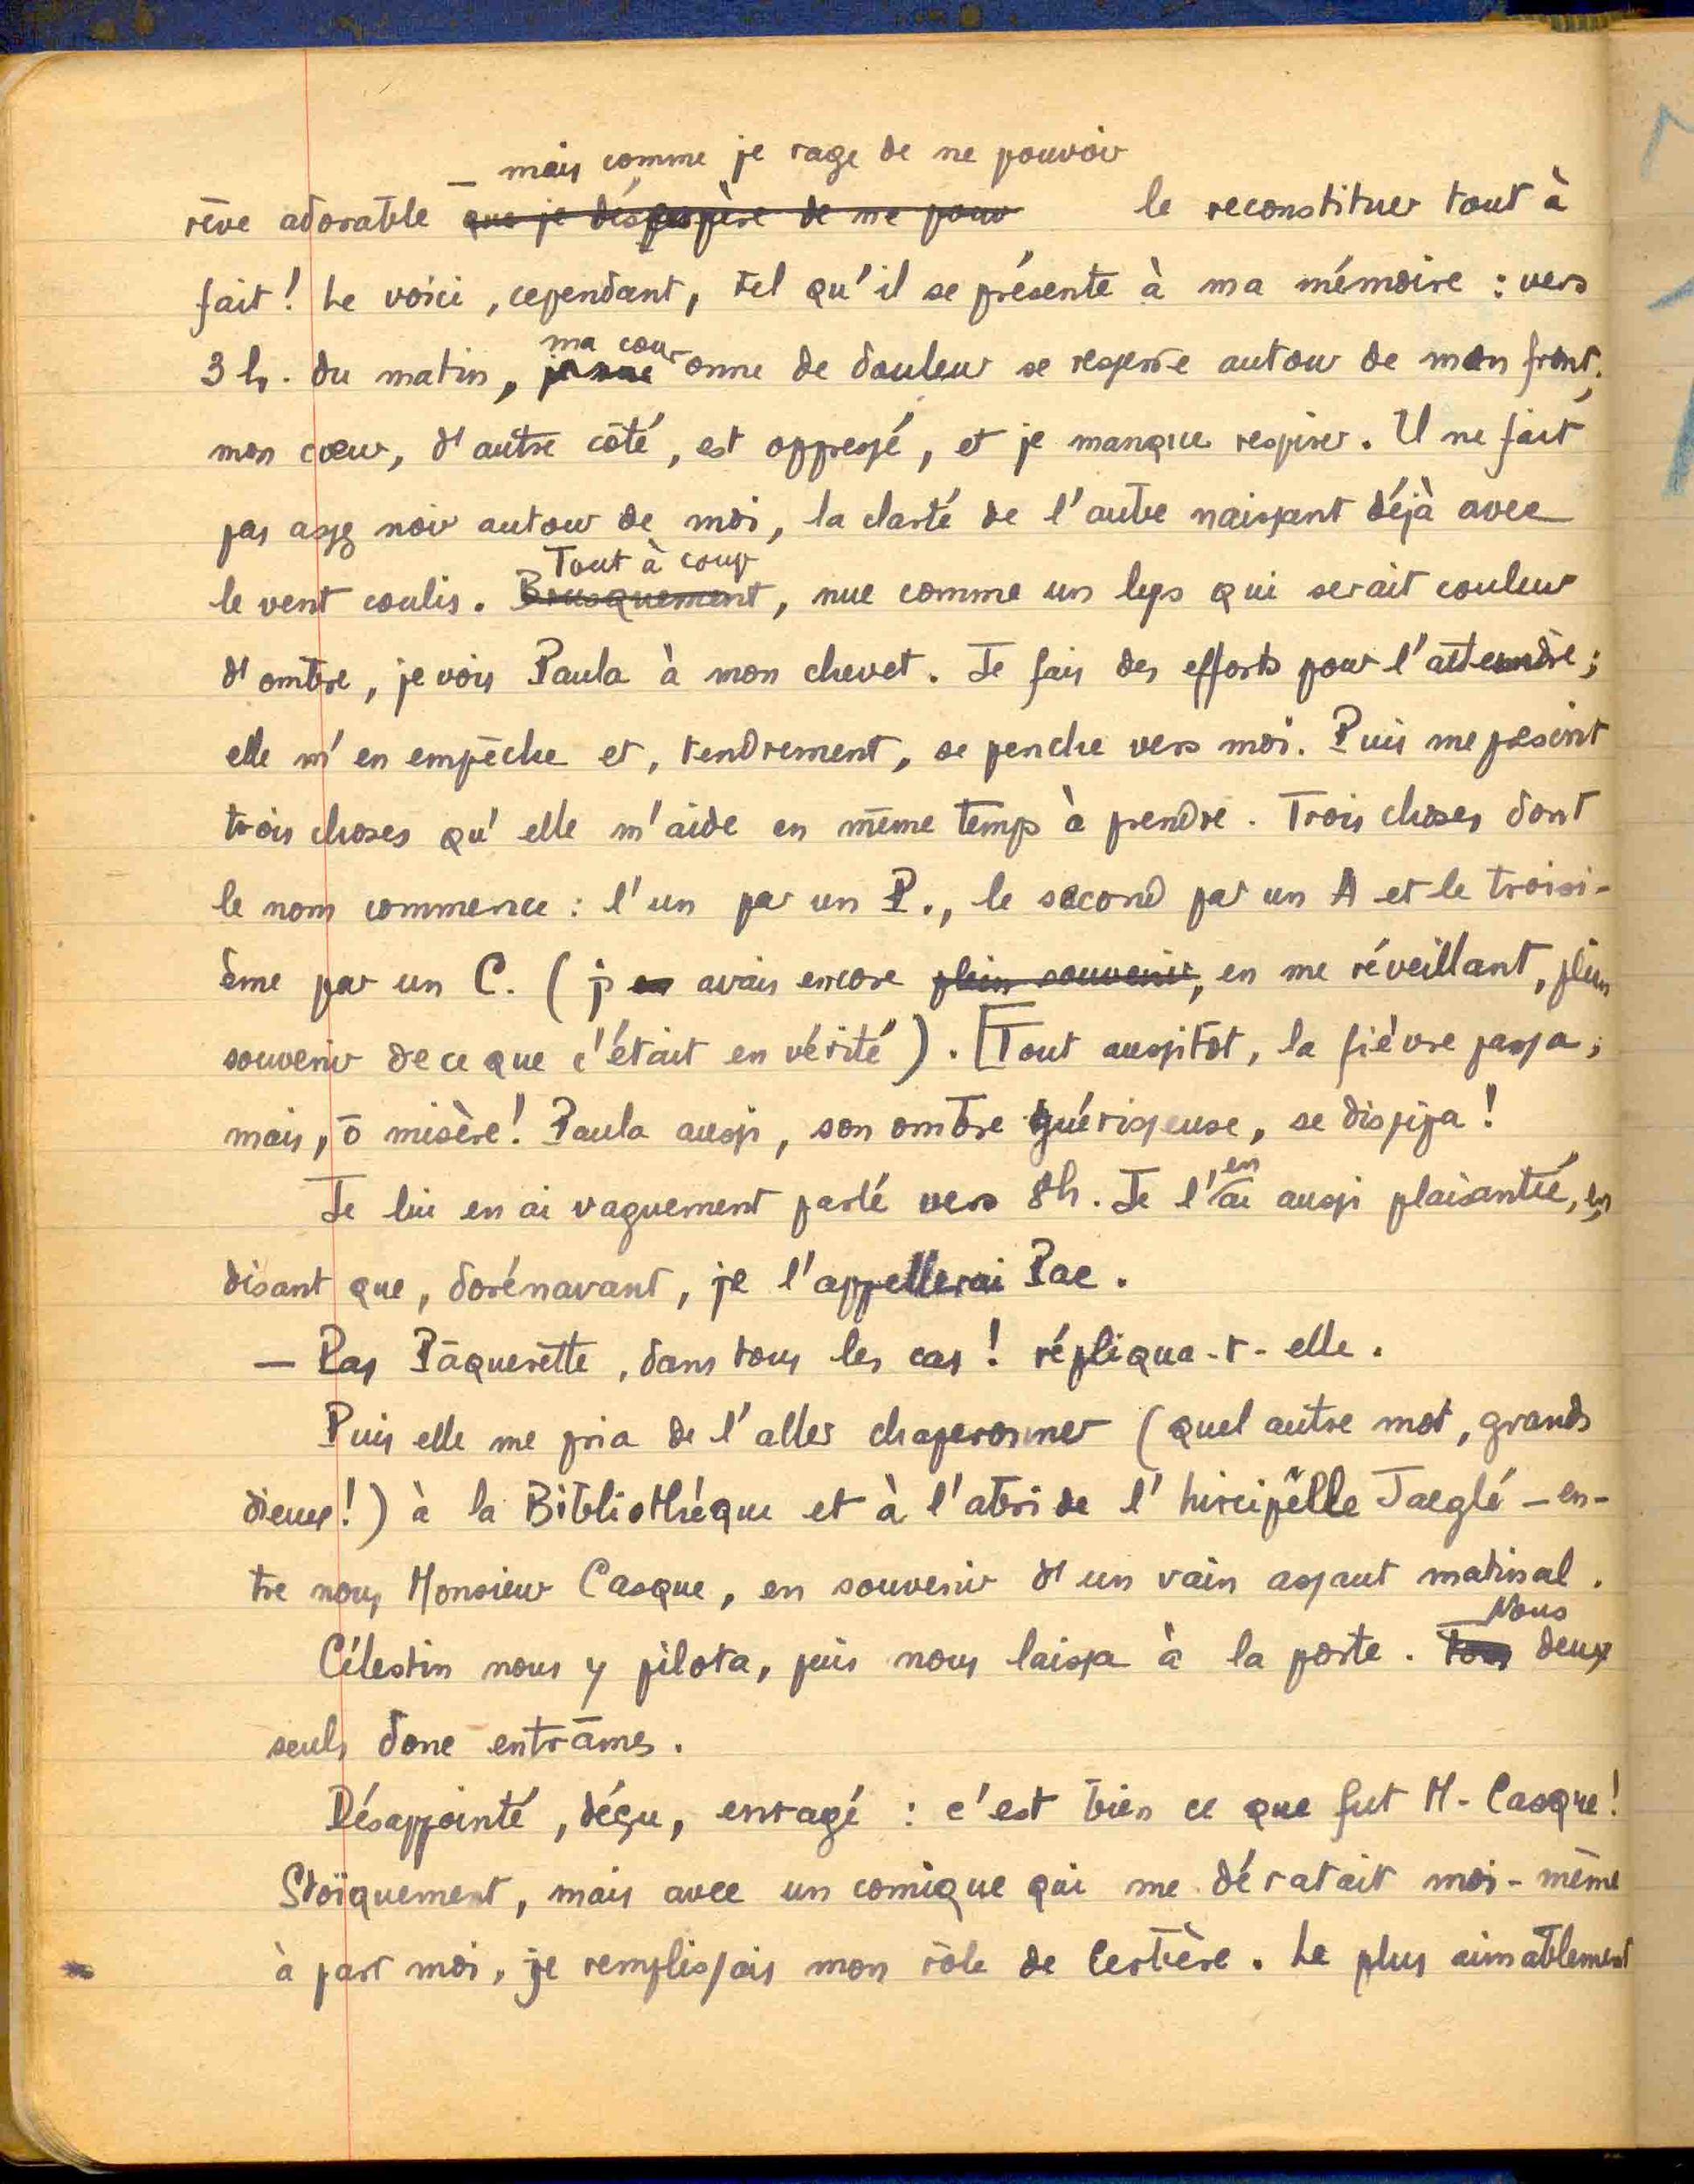 — mais comme je rage de ne pouvoir
rêve adorable que je désespère de ne pouv le reconstituer tout à
fait ! Le voici, cependant, tel qu'il se présente à ma mémoire : vers
3 h. du matin, ma couronne de douleur se resserre autour de mon front ;
mon cœur, d'autre côté, est oppressé, et je manque respirer. Il ne fait
pas assez noir autour de moi, la clarté de l'aube naissant déjà avec
le vent coulis. Brusquement Tout à coup, nue comme un lys qui serait couleur
d'ombre, je vois Paula à mon chevet. Je fais des efforts pour l'atteindre ;
elle m'en empêche et, tendrement, se penche vers moi. Puis me présent
trois choses qu'elle m'aide en même temps à prendre. Trois choses dont
le nom commence : l'un par un P., le second par un A et le troisi-
ème par un C. (j'en avais encore plein souvenir, en me réveillant, plein
souvenir de ce que c'était en vérité). [Tout aussitôt, la fièvre passa ;
mais, ô misère ! Paula aussi, son ombre guérisseuse, se dissipa !
Je lui en ai vaguement parlé vers 8h. Je l'en ai aussi plaisantée, en
disant que, dorénavant, je l'appellerai Pac.
— Pas Pâquerette, dans tous les cas ! répliqua-t-elle.
Puis elle me pria de l'aller chaperonner (quel autre mot, grands
dieux !) à la Bibliothèque et à l'abri de l'hircipèlle Jaeglé — en-
tre nous Monsieur Casque, en souvenir d'un vain assaut matinal.
Célestin nous y pilota, puis nous laissa à la porte. Tous Nous deux
seuls donc entrâmes.
Désappointé, déçu, enragé : c'est bien ce que fut M. Casque !
Stoïquement, mais avec un comique qui me dératait moi-même
à part moi, je remplissais mon rôle de Cerbère. Le plus aimablement